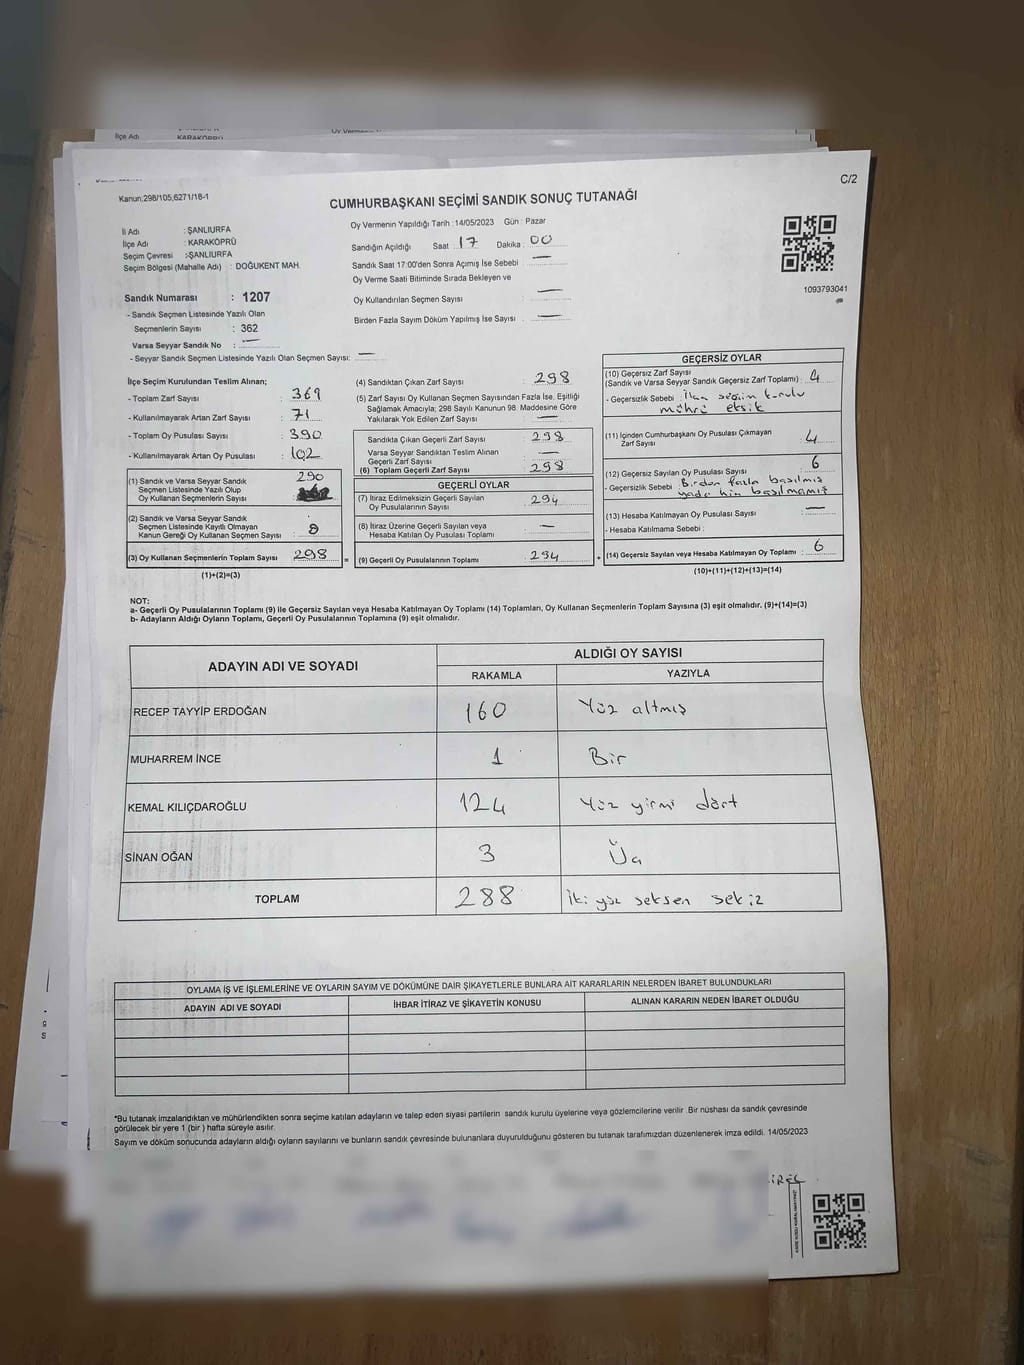 İlçe Adı
KARAKÖPRÜ
Kanun:298/105;6271/18-1
C/2
CUMHURBAŞKANI SEÇİMİ SANDIK SONUÇ TUTANAĞI
İl Adı : ŞANLIURFA
İlçe Adı : KARAKÖPRÜ
Seçim Çevresi :ŞANLIURFA
Seçim Bölgesi (Mahalle Adı) : DOĞUKENT MAH.
Sandık Numarası : 1207
- Sandık Seçmen Listesinde Yazılı Olan
Seçmenlerin Sayısı : 362
Varsa Seyyar Sandık No : —
- Seyyar Sandık Seçmen Listesinde Yazılı Olan Seçmen Sayısı: —
Oy Vermenin Yapıldığı Tarih :14/05/2023 Gün : Pazar
Sandığın Açıldığı Saat : 17 Dakika : 00
Sandık Saat 17:00'den Sonra Açımış İse Sebebi : —
Oy Verme Saati Bitiminde Sırada Bekleyen ve
Oy Kullandırılan Seçmen Sayısı : —
Birden Fazla Sayım Döküm Yapılmış İse Sayısı : —
1093793041
İlçe Seçim Kurulundan Teslim Alınan;
- Toplam Zarf Sayısı : 369
- Kullanılmayarak Artan Zarf Sayısı : 71
- Toplam Oy Pusulası Sayısı : 390
- Kullanılmayarak Artan Oy Pusulası : 102
(1) Sandık ve Varsa Seyyar Sandık
Seçmen Listesinde Yazılı Olup
Oy Kullanan Seçmenlerin Sayısı : 290
(2) Sandık ve Varsa Seyyar Sandık
Seçmen Listesinde Kayıtlı Olmayan
Kanun Gereği Oy Kullanan Seçmen Sayısı : 8
(3) Oy Kullanan Seçmenlerin Toplam Sayısı : 298
(1)+(2)=(3)
(4) Sandıktan Çıkan Zarf Sayısı : 298
(5) Zarf Sayısı Oy Kullanan Seçmen Sayısından Fazla İse, Eşitliği
Sağlamak Amacıyla; 298 Sayılı Kanunun 98. Maddesine Göre
Yakılarak Yok Edilen Zarf Sayısı : —
Sandıkta Çıkan Geçerli Zarf Sayısı : 298
Varsa Seyyar Sandıktan Teslim Alınan
Geçerli Zarf Sayısı : —
(6) Toplam Geçerli Zarf Sayısı : 298
GEÇERLİ OYLAR
(7) İtiraz Edilmeksizin Geçerli Sayılan
Oy Pusulalarının Sayısı : 294
(8) İtiraz Üzerine Geçerli Sayılan veya
Hesaba Katılan Oy Pusulası Toplamı : —
= (9) Geçerli Oy Pusulalarının Toplamı : 294 +
GEÇERSİZ OYLAR
(10) Geçersiz Zarf Sayısı
(Sandık ve Varsa Seyyar Sandık Geçersiz Zarf Toplamı) : 4
- Geçersizlik Sebebi : İlçe seçim kurulu
mührü eksik
(11) İçinden Cumhurbaşkanı Oy Pusulası Çıkmayan
Zarf Sayısı : 4
(12) Geçersiz Sayılan Oy Pusulası Sayısı : 6
- Geçersizlik Sebebi : Birden fazla basılmış
yada hiç basılmamış
(13) Hesaba Katılmayan Oy Pusulası Sayısı : —
- Hesaba Katılmama Sebebi :
(14) Geçersiz Sayılan veya Hesaba Katılmayan Oy Toplamı : 6
(10)+(11)+(12)+(13)=(14)
NOT:
a- Geçerli Oy Pusulalarının Toplamı (9) ile Geçersiz Sayılan veya Hesaba Katılmayan Oy Toplamı (14) Toplamları, Oy Kullanan Seçmenlerin Toplam Sayısına (3) eşit olmalıdır. (9)+(14)=(3)
b- Adayların Aldığı Oyların Toplamı, Geçerli Oy Pusulalarının Toplamına (9) eşit olmalıdır.
ADAYIN ADI VE SOYADI
ALDIĞI OY SAYISI
RAKAMLA YAZIYLA
RECEP TAYYİP ERDOĞAN 160 Yüz altmış
MUHARREM İNCE 1 Bir
KEMAL KILIÇDAROĞLU 124 Yüz yirmi dört
SİNAN OĞAN 3 Üç
TOPLAM 288 İki yüz seksen sekiz
OYLAMA İŞ VE İŞLEMLERİNE VE OYLARIN SAYIM VE DÖKÜMÜNE DAİR ŞİKAYETLERLE BUNLARA AİT KARARLARIN NELERDEN İBARET BULUNDUKLARI
ADAYIN ADI VE SOYADI İHBAR İTİRAZ VE ŞİKAYETİN KONUSU ALINAN KARARIN NEDEN İBARET OLDUĞU
*Bu tutanak imzalandıktan ve mühürlendikten sonra seçime katılan adayların ve talep eden siyasi partilerin sandık kurulu üyelerine veya gözlemcilerine verilir. Bir nüshası da sandık çevresinde
görülecek bir yere 1 (bir ) hafta süreyle asılır.
Sayım ve döküm sonucunda adayların aldığı oyların sayılarını ve bunların sandık çevresinde bulunanlara duyurulduğunu gösteren bu tutanak tarafımızdan düzenlenerek imza edildi. 14/05/2023